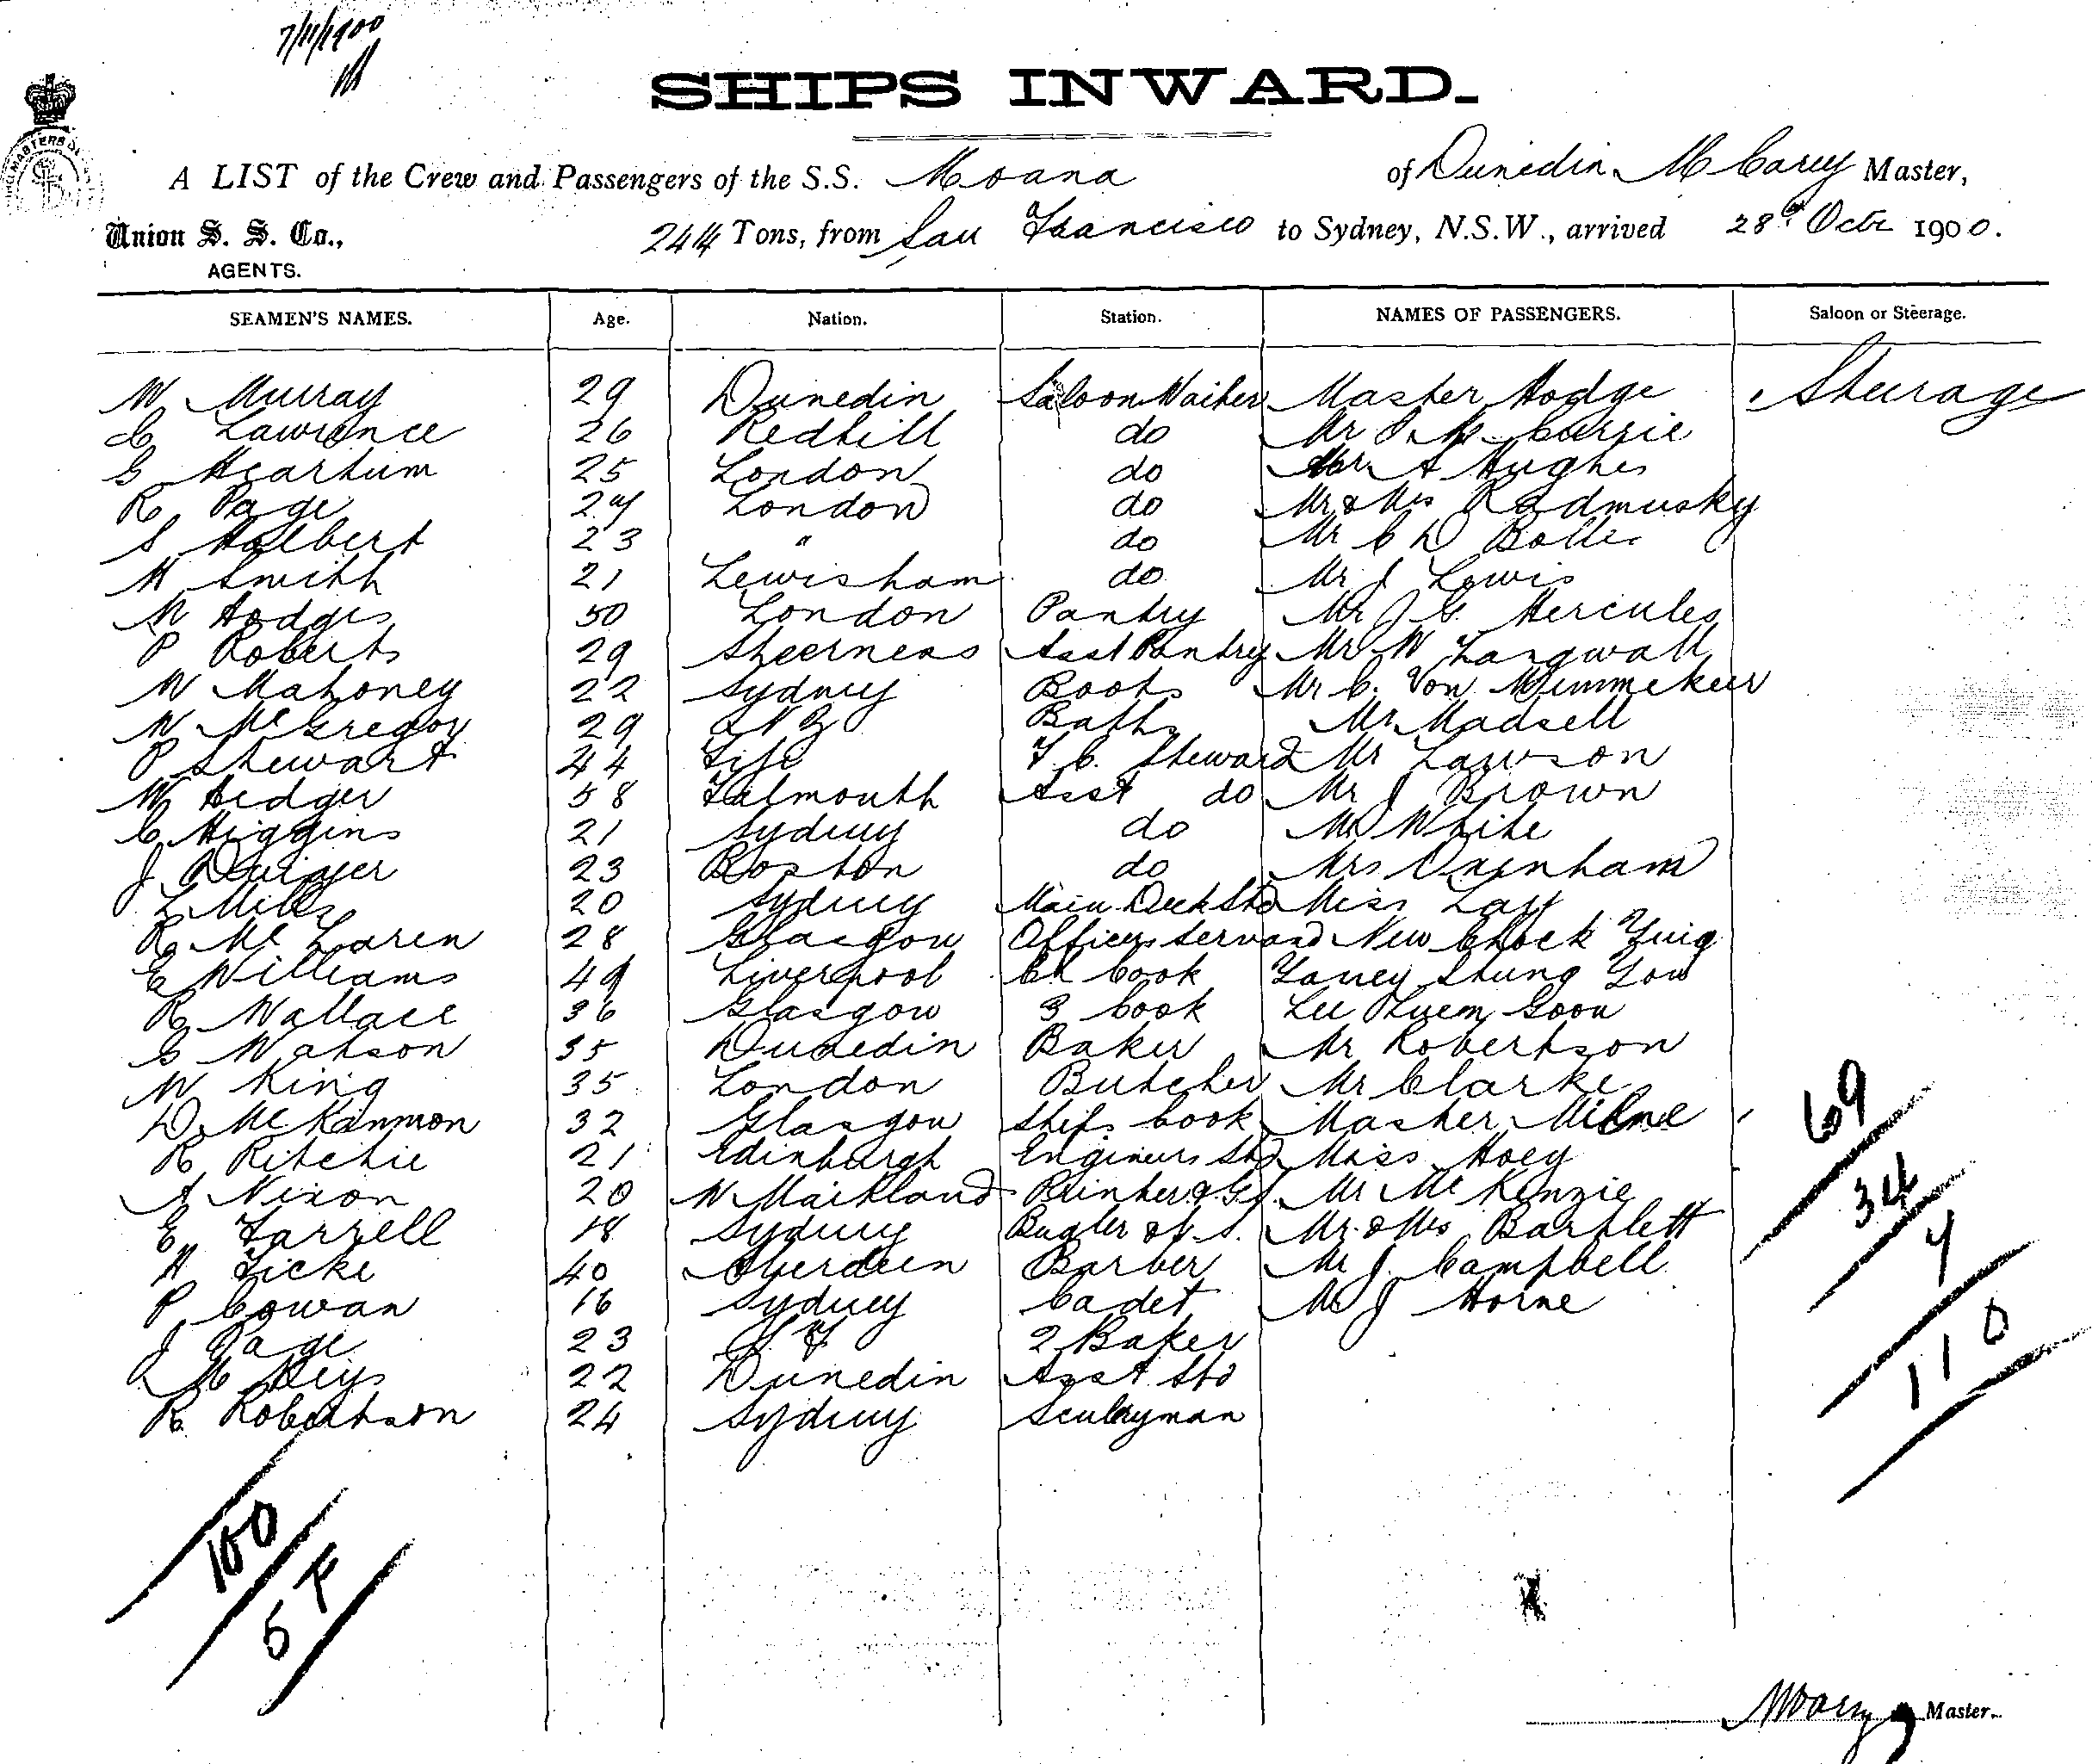 7/11/1900
SHIPS INWARD.
A LIST of the Crew and Passengers of the S.S. Moana of Dunedin M Carey Master,
Union S. S. Co., 2414 Tons, from San Francisco to Sydney, N.S.W., arrived 28th Octr 1900.
AGENTS.
SEAMEN'S NAMES. Age. Nation. Station. NAMES OF PASSENGERS. Saloon or Steerage.
W Murray 29 Dunedin Saloon Waiter Master Hodge Steerage
C Lawrence 26 Redhill do Mr Currie
G Heartum 25 London do Mr A Hughes
R Page 27 London do Mr & Mrs Radmusky
S Halbert 23 " do Mr C D Bolles
H Smith 21 Lewisham do Mr J Lewis
M Hodges 50 London Pantry Mr J G Hercules
P Roberts 29 Sheerness Asst Pantry Mr W Langwall
W Mahoney 22 Sydney Boots Mr C. Von
W McGregor 29 N Z Baths Mr Madsell
P Stewart 44 Fife F. C. Steward Mr Lawson
W Hedger 58 Falmouth Asst do Mr J Brown
C Higgins 21 Sydney do Mr White
J 23 Boston do Mrs Oxenham
L Mills 20 Sydney Main Deck Std Miss Lay
R McLaren 28 Glasgow Officers Servant New Chock Yuig
E Williams 49 Liverpool Ch Cook Yauey Shung Yow
R Wallace 36 Glasgow 3 Cook Lee Luem Goon
G Watson 35 Dunedin Baker Mr Robertson
W King 35 London Butcher Mr Clarke
D McKinmon 32 Glasgow Ships Cook Master Milne
R Ritchie 21 Edinburgh Engineers Std Miss Hoey
A Nixon 20 W Maitland Printer & G.S. Mr McKenzie
E Farrell 18 Sydney Bugler & G. S. Mr & Mrs Bartlett
H Ficke 40 Aberdeen Barber Mr J. Campbell
P Cowan 16 Sydney Cadet Mr J Horne
J Page 23 S. F 2 Baker
22 Dunedin Asst Std
R Robertson 24 Sydney Sculeryman
69
34
7
110
100
5
Master.